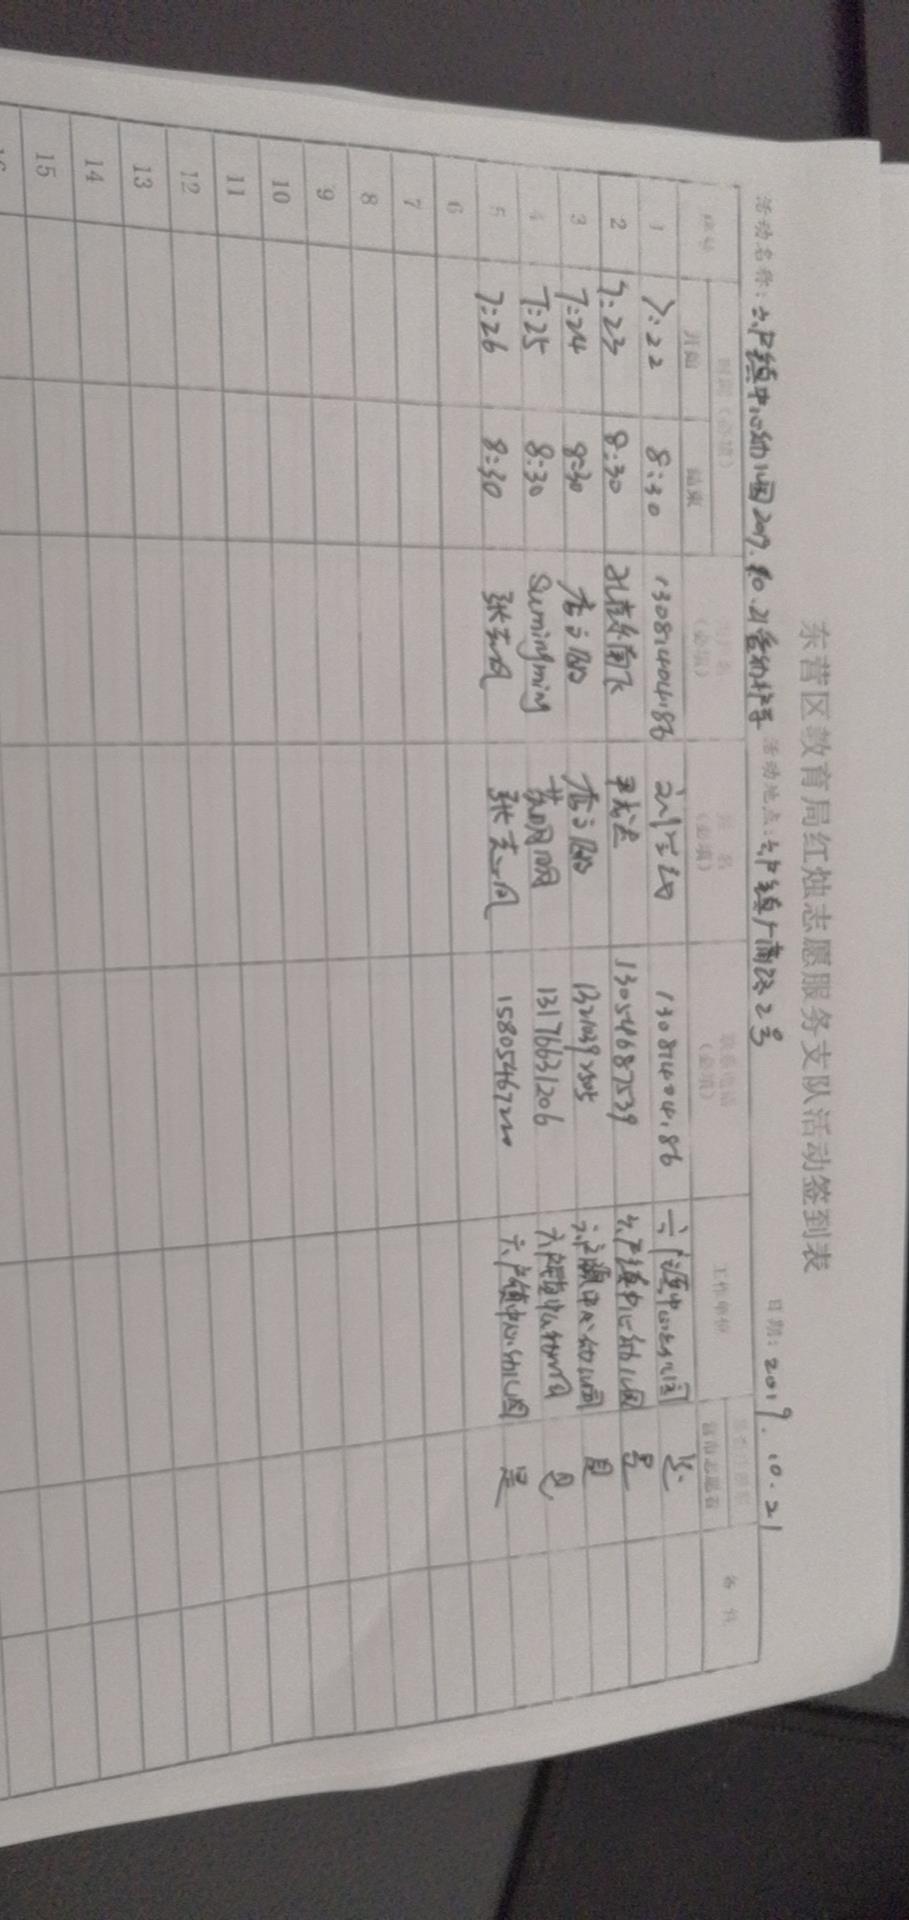 东营区教育局红烛志愿服务支队活动签到表
日期: 2019.10.21
活动名称: 六户镇中心幼儿园2019.10.21 活动地点: 六户镇广南路2号
序号 时间(必填) 用户名(必填) 姓名(必填) 联系电话(必填) 工作单位 志愿者 备注
开始 结束
1 7:22 8:30 13081404186 13081404186 六户镇中心幼儿园 是
2 7:23 8:30 13054687539 六户镇中心幼儿园 是
3 7:24 8:30 六户镇中心幼儿园 是
4 7:25 8:30 Sumingming 苏明明 13176631206 六户镇中心幼儿园 是
5 7:26 8:30 15805467220 六户镇中心幼儿园 是
6
7
8
9
10
11
12
13
14
15